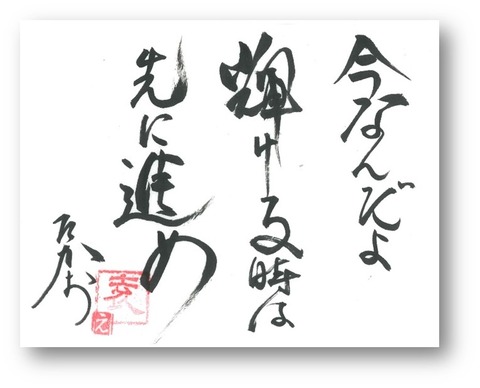 今なんだよ
輝ける時は
先に進め